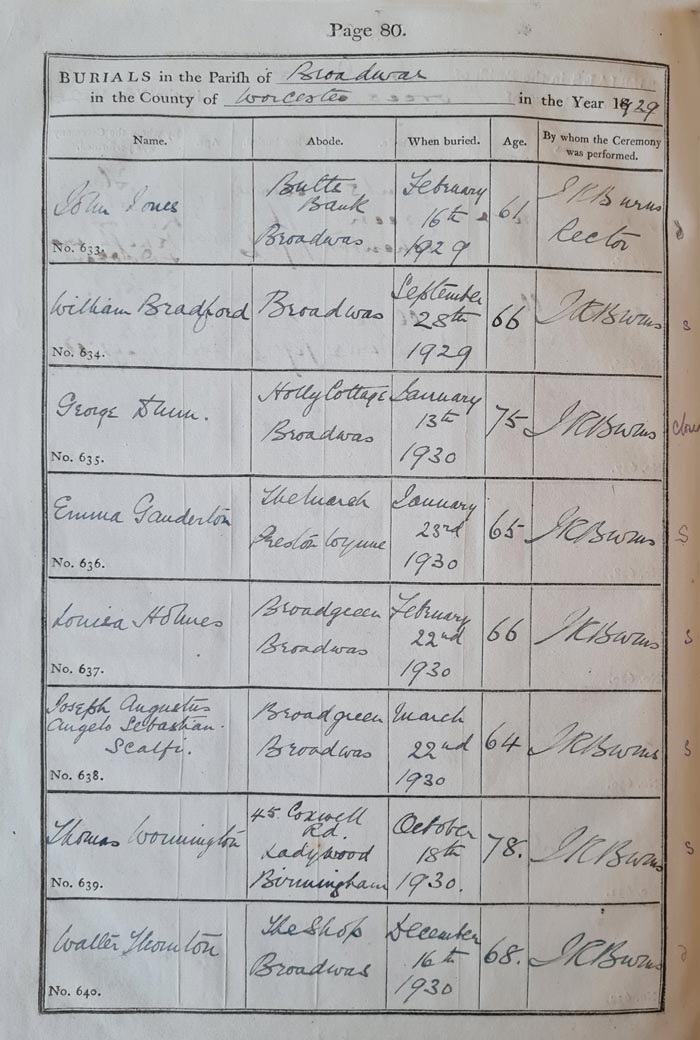 Page 80.
BURIALS in the Parish of Broadwas
in the County of Worcester in the Year 1929
Name. Abode. When buried. Age. By whom the Ceremony was performed.
John Jones
No. 633.
Butts
Bank
Broadwas
February
16th
1929
61
J R Burns
Rector
William Bradford
No. 634.
Broadwas
September
28th
1929
66
J R Burns
George Dunn.
No. 635.
Holly Cottage
Broadwas
January
13th
1930
75
J R Burns
Emma Gauderton
No. 636.
The Marsh
Preston Wynne
January
23rd
1930
65
J R Burns
Louisa Holmes
No. 637.
Broadgreen
Broadwas
February
22nd
1930
66
J R Burns
Joseph Augustus
Angelo Sebastian
Scalfi.
No. 638.
Broadgreen
Broadwas
March
22nd
1930
64
J R Burns
Thomas Wormington
No. 639.
45 Coxwell
Rd.
Ladywood
Birmingham
October
18th
1930.
78.
J R Burns
Walter Thornton
No. 640.
The Shop
Broadwas
December
16th
1930
68.
J R Burns